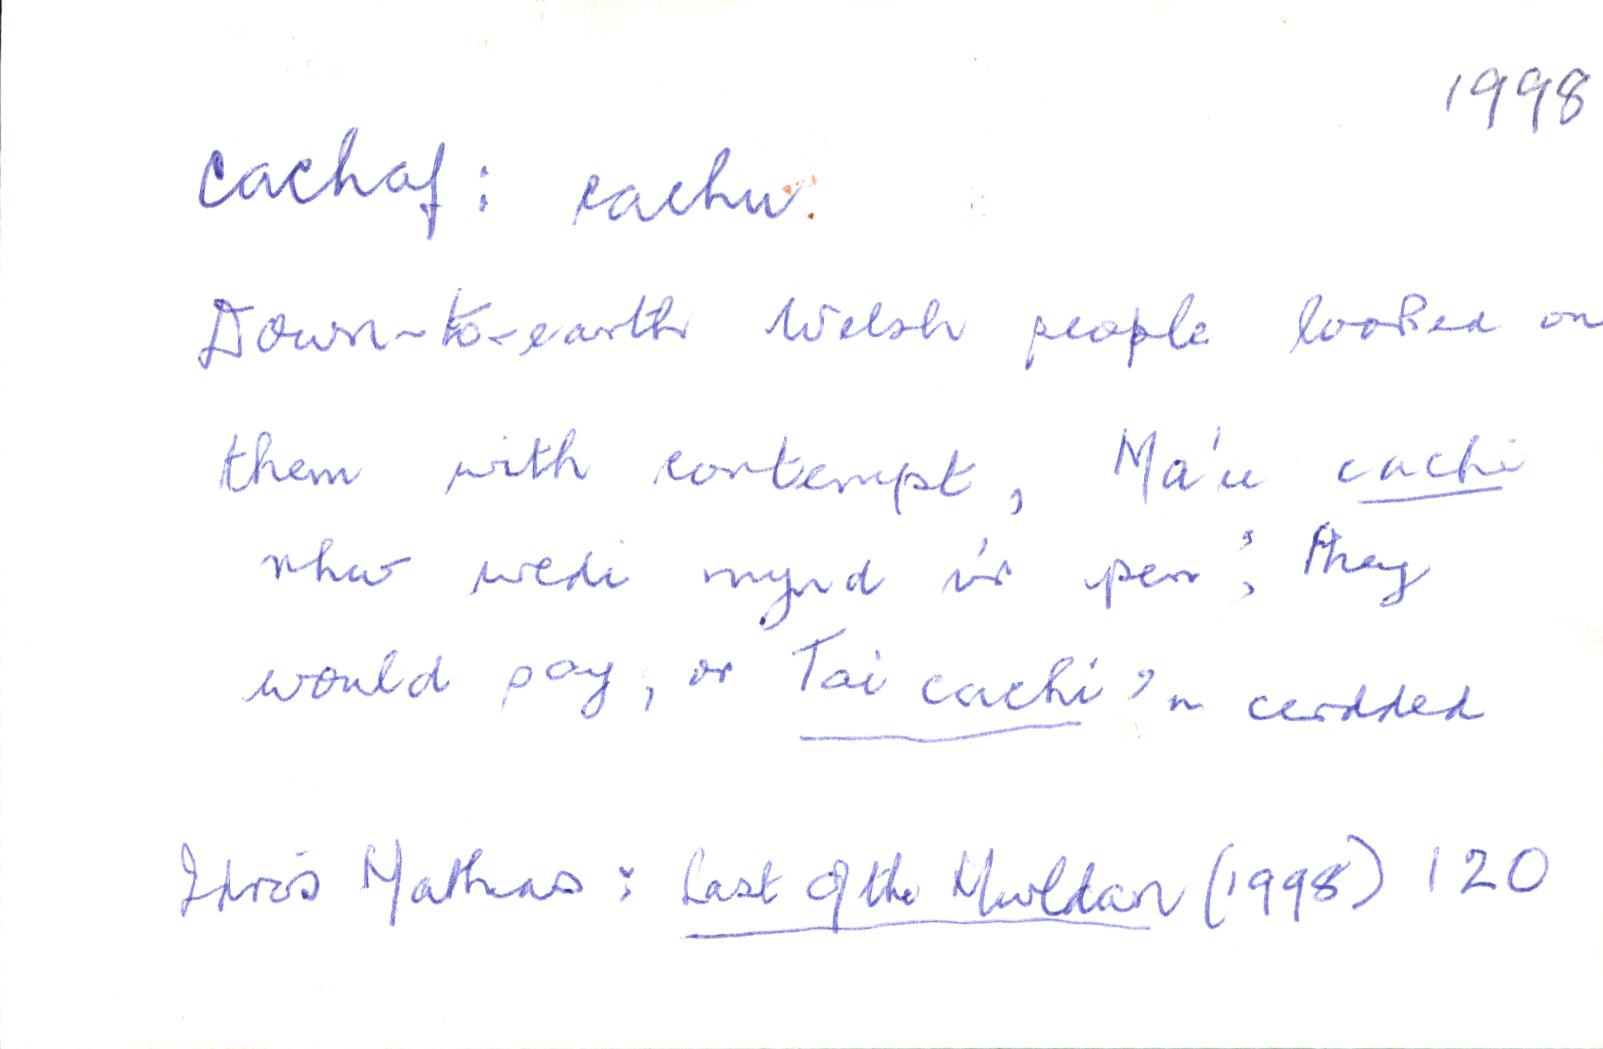 1998
cachaf: cachu.
Down-to-earth Welsh people looked on
them with contempt, Ma'u cachi
nhw wedi mynd i'r pen'; they
would pay, or Tai cachi'n cerdded
Idris Mathias: Last of the Mwldan (1998) 120